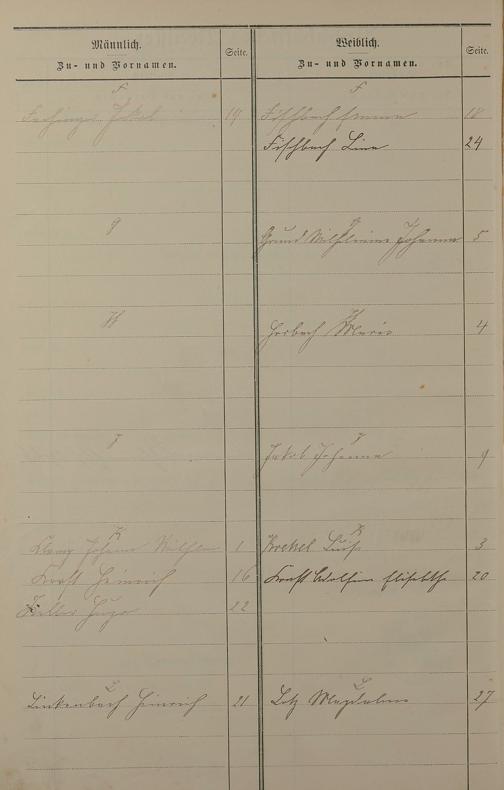 Männlich.
Zu- und Vornamen.
Seite.
Weiblich.
Zu- und Vornamen.
Seite.
F
F
Jakob 19
Fischbach Emma 18
Fischbach Lina 24
G
G
Grund Wilhelmine Johanna 5
H
H
Horbach Maria 4
J
J
Jakob Johanna 9
K
K
Johann Wilhelm 1
Krekel Luise 3
Kraft Heinrich 16
Kraft Adolfine Elisabetha 20
Keller Hugo 22
L
L
Linkenbach Heinrich 21
Lotz Magdalena 27